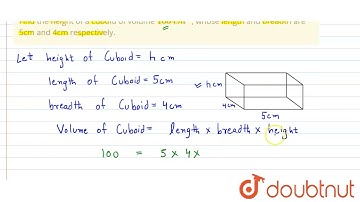 Find the height of a cuboid of volume 100 cm³, whose length and breadth are
5cm and 4cm respectively.
Let height of Cuboid = h cm
length of Cuboid = 5cm
breadth of Cuboid = 4cm
h cm
4cm
5cm
Volume of Cuboid = length × breadth × height
100 = 5 × 4 ×
doubtnut